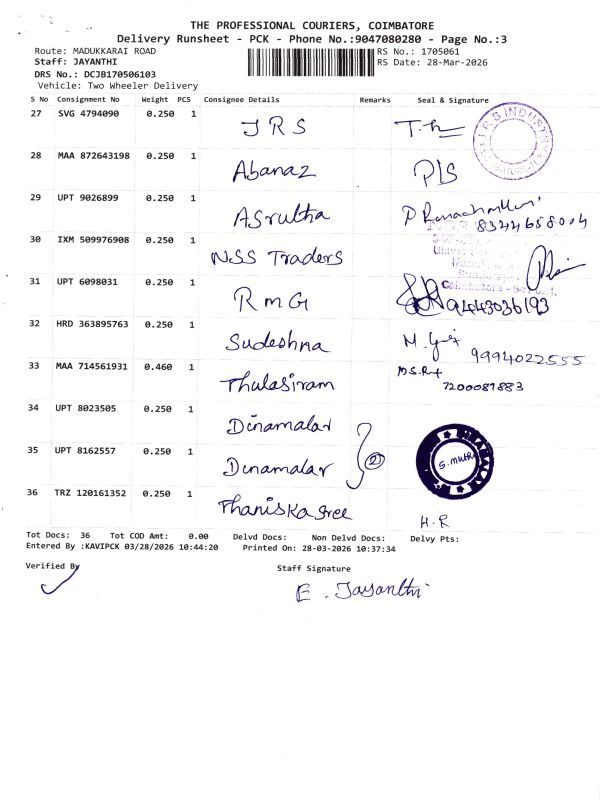 THE PROFESSIONAL COURIERS, COIMBATORE
Delivery Runsheet - PCK - Phone No.:9047080280 - Page No.:3
Route: MADUKKARAI ROAD
RS No.: 1705061
Staff: JAYANTHI
RS Date: 28-Mar-2026
DRS No.: DCJB170506103
Vehicle: Two Wheeler Delivery
S No Consignment No Weight PCS Consignee Details Remarks Seal & Signature
27 SVG 4794090 0.250 1 JRS
28 MAA 872643198 0.250 1 Abanaz PLS
29 UPT 9026899 0.250 1 Asrutha
8344658004
30 IXM 509976908 0.250 1 NSS Traders
31 UPT 6098031 0.250 1 RMG 9443036193
32 HRD 363895763 0.250 1 Sudeshna 9994022555
33 MAA 714561931 0.460 1 Thulasiram 7200081883
34 UPT 8023505 0.250 1 Dinamalar
35 UPT 8162557 0.250 1 Dinamalar 2
36 TRZ 120161352 0.250 1 Thaniska sree H.R
Tot Docs: 36 Tot COD Amt: 0.00 Delvd Docs: Non Delvd Docs: Delvy Pts:
Entered By :KAVIPCK 03/28/2026 10:44:20 Printed On: 28-03-2026 10:37:34
Verified By
Staff Signature
E. Jayanthi